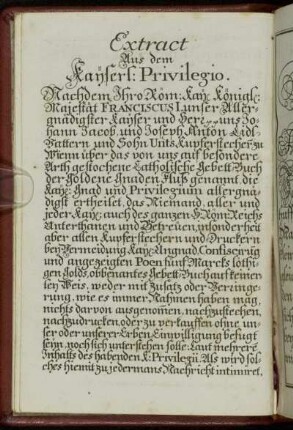 Extract
Aus dem
Kaÿsers: Privilegio.
Nachdem Ihro Röm: Kaÿ: Königl:
Majestät FRANCISCUS I unser Aller-
gnädigster Kaiser und Herz uns Jo-
hann Jacob, und Joseph Anton Eidl
Vattern und Sohn Univ. Kupferstecher zu
Wienn über das von uns auf besondere
Arth gestochene Catholische Gebett-Buch
der Goldene Gnaden-Fluß genannt, die
Kaÿ: Gnad und Privilegium allergnä-
digst ertheilet, das Niemand, aller und
jeder Kaÿ: auch des ganzen H. Röm. Reichs
Unterthanen und Getreuen, insonderheit
aber allen Kupferstechern und Druckern
beÿ Vermeidung Kaÿ: Ungnad, Confiscirung
und angezeigten Poen fünf Marck löthi-
gen Golds, obbenantes Gebett-Buch auf keiner-
leÿ Weis, weder mit Zusatz oder Geringe-
rung, wie es immer Nahmen haben mag,
nichts darvon ausgenom̄en, nachzustechen,
nachzudrucken, oder zu verkauffen ohne un-
ser oder unserer Erben Einwilligung befugt
seÿn, noch sich unterstehen solle: Laut mehrere
Inhalts des habenden K: Privilegii. Als wird sol-
ches hiemit zu jedermans Nachricht intimiret.